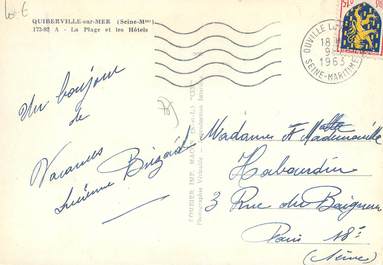 Lot 6
QUIBERVILLE-sur-MER (Seine-Mme)
173-92 A - La Plage et les Hôtels
OUVILLE L
18
9
1963
SEINE-MARITIME
Un bonjour
de
Vacances
Lucienne Bizard
Madame et Mademoiselle
Habourdin
3 Rue du Baigneur
Paris 18e
(Seine)